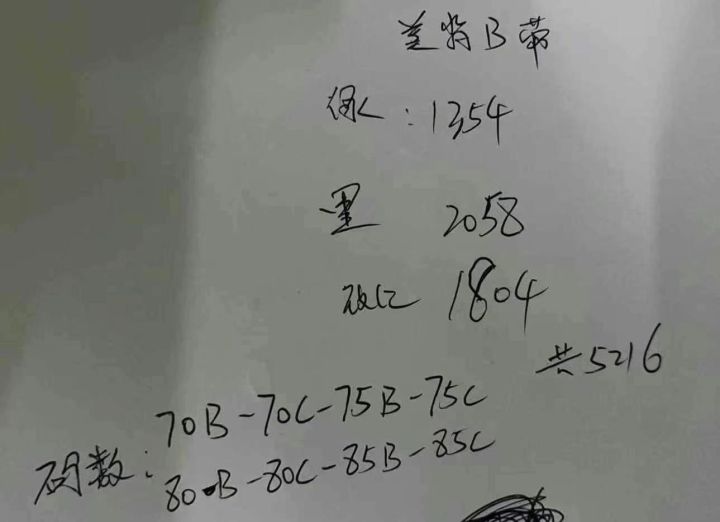 B带
:1354
黑 2058
1804
共5216
70B-70C-75B-75C
码数:
80B-80C-85B-85C